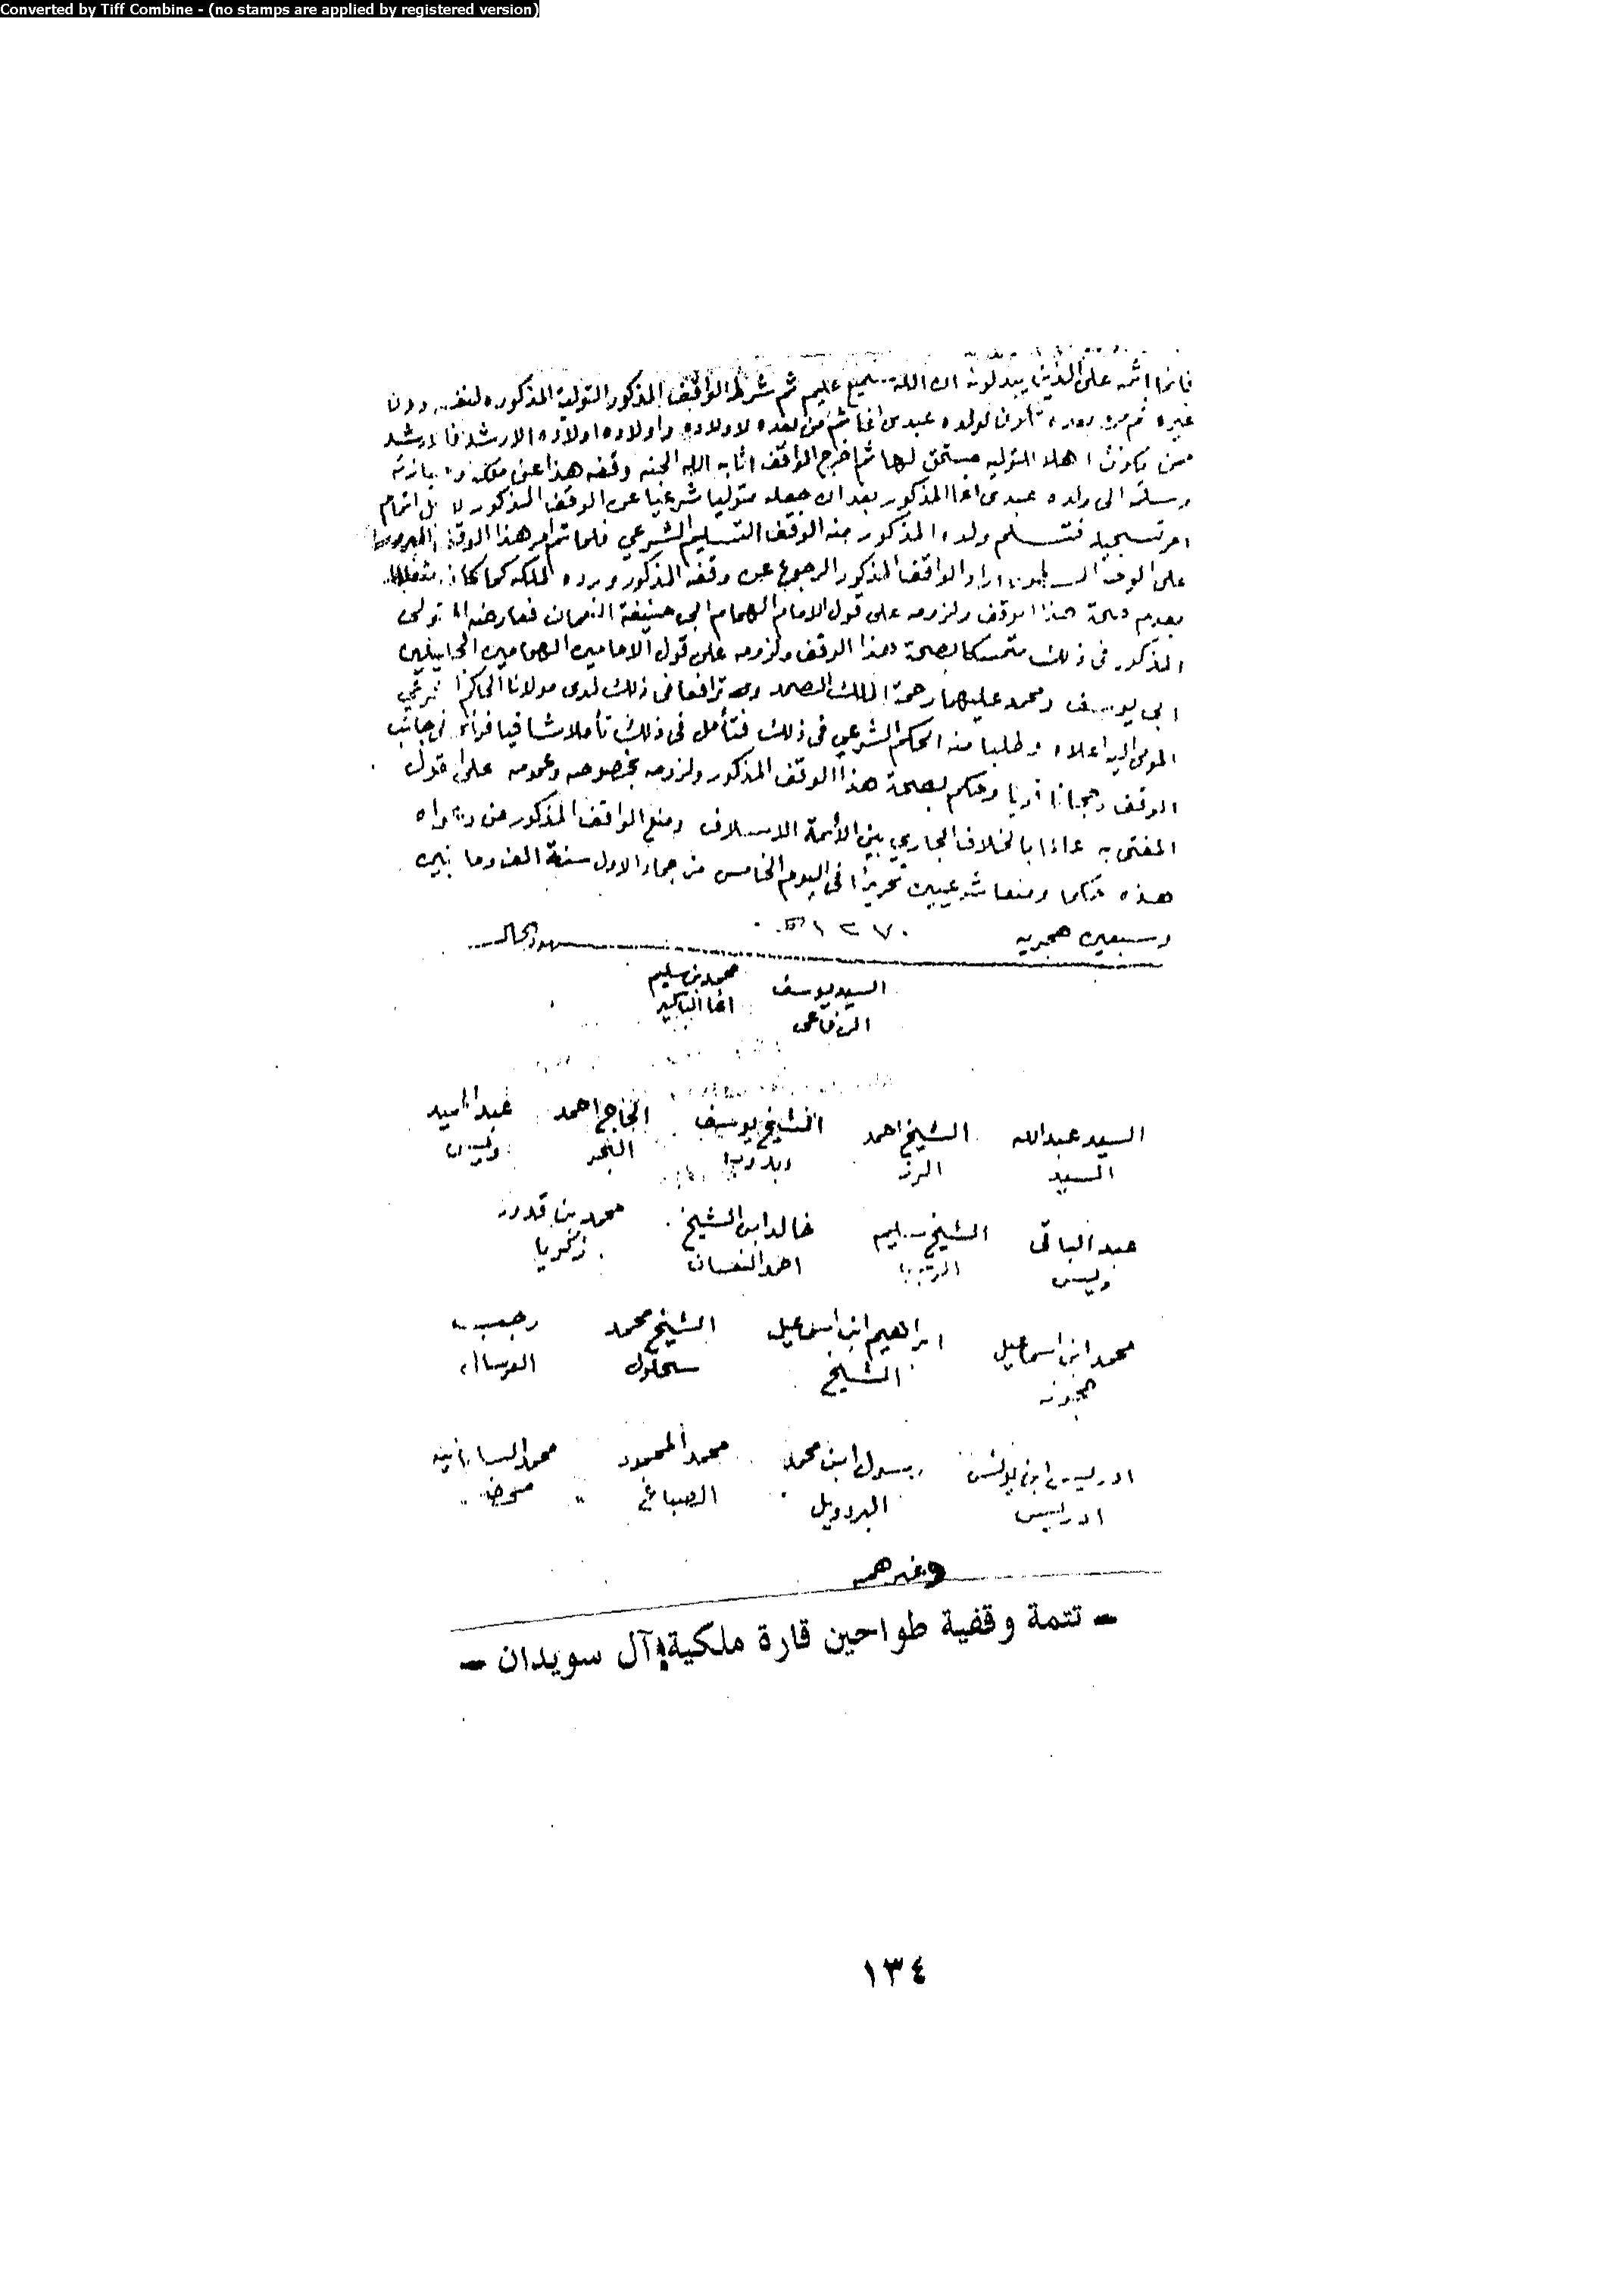 Converted by Tiff Combine - (no stamps are applied by registered version)
فانما اثمه على الذين يبدلونه ان الله سميع عليم ثم شرط الواقف المذكور التولية المذكوره لنفسه دون
غيره ثم من بعده تكون لولده عبدي اغا ثم من بعده لاولاده واولاد اولاده الارشد فالارشد
ممن يكون اهلا للتوليه مستحق لها ثم اخرج الواقف اثابه الله الجنه وقفه هذا عن ملكه وحيازته
وسلمه الى ولده عبدي اغا المذكور بعد ان جعله متوليا شرعيا عن الوقف المذكور لا بل اتمام
امر تسجيله فتسلم ولده المذكور منه الوقف التسليم الشرعي فلما تم امر هذا الوقف
على الوجه المسطور اراد الواقف المذكور الرجوع عن وقفه المذكور ورده لملكه كما كان
بعدم صحة هذا الوقف ولزومه على قول الامام الهمام ابي حنيفة النعمان فعارضه المتولى
المذكور في ذلك متمسكا بصحة هذا الوقف ولزومه على قول الامامين الهمامين الجليلين
ابي يوسف ومحمد عليهما رحمة الملك الصمد وترافعا في ذلك لدى مولانا الحاكم الشرعي
المومى اليه اعلاه وطلبا منه الحكم الشرعي في ذلك فتأمل في ذلك تأملا شافيا فرأى في جانب
الوقف رجحانا قويا وحكم بصحة هذا الوقف المذكور ولزومه بخصوصه وعمومه على قول
المفتى به عالما بالخلاف الجاري بين الأئمة الاسلاف ومنع الواقف المذكور من دعواه
هذه حكما ومنعا شرعيين تحريرا في اليوم الخامس من جماد الاول سنة الف وماتين
وسبعين هجريه ١٢٧٠
شهود الحال
السيد يوسف محمد بن سليم
الرفاعى اغا
السيد عبدالله الشيخ احمد الشيخ يوسف الحاج احمد
السيد الرز
عبد الباقى الشيخ سليم خالد ابن الشيخ محمد بن قدور
ويس احمد النعسان زكريا
محمد ابن اسماعيل ابراهيم ابن اسماعيل الشيخ محمد رجب
الشيخ سحلول
ادريس ابن يونس رسول ابن محمد محمد المحمود محمد
ادريس البردويل الصباغ
وغيرهم
- تتمة وقفية طواحين قارة ملكية آل سويدان -
١٣٤